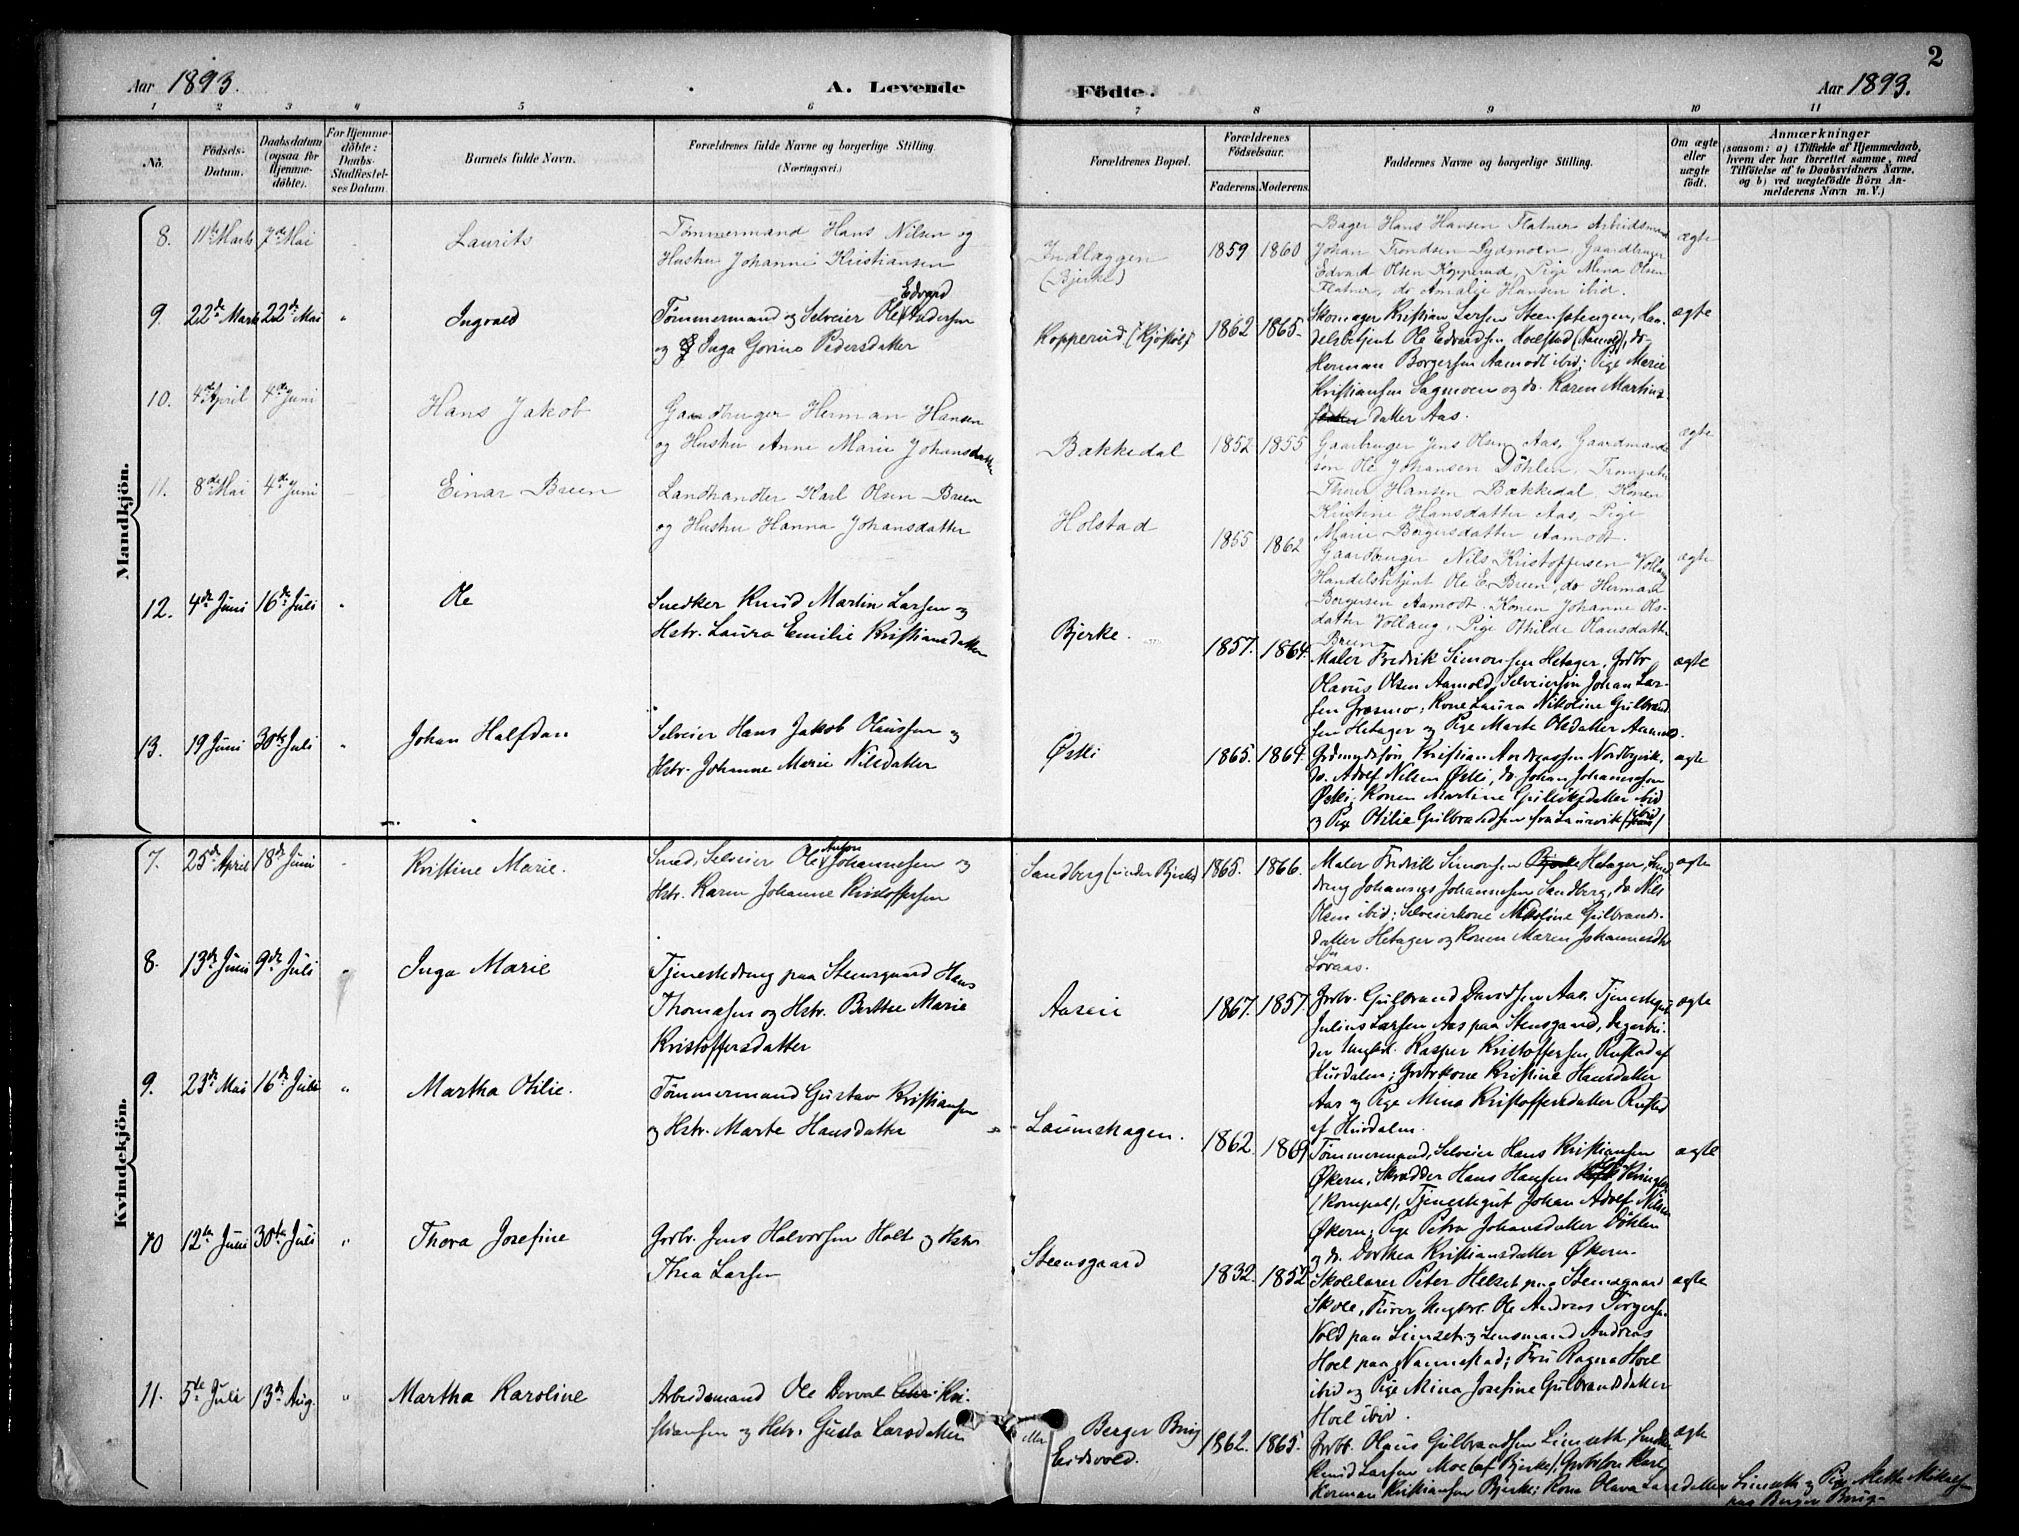 2
Aar 1893.
A. Levende
Födte.
Aar 1893.
1 2 3 4 5 6 7 8 9 10 11
No.
Födsels-
Datum.
Daabsdatum
(ogsaa for
Hjemme-
döbte).
For Hjemme-
döbte:
Daabs-
Stadfæstel-
ses Datum.
Barnets fulde Navn.
Forældrenes fulde Navne og borgerlige Stilling.
(Næringsvei.)
Forældrenes Bopæl.
Forældrenes
Födselsaar.
Faderens. Moderens.
Faddernes Navne og borgerlige Stilling.
Om ægte
eller
uægte
födt.
Anmærkninger
(saasom: a) (Tilfælde af Hjemmedaab,
hvem der har forrettet samme, med
Tilföielse af to Daabsvidners Navne,
og b) ved uægtefödte Börn An-
melderens Navn m. V.)
Mandkjön.
8. 11te Marts 7de Mai
Laurits
Tømmermand Hans Nilsen og
Hustru Johanne Kristiansen
Indlæggen
(Bjerke)
1859 1860
Bager Hans Hansen Flatner Arbeidsmand
Johan Trondsen Gaardbruger
Edvard Olsen Kopperud, Pige Mina Olsen
Flatner, do Amalie Hansen ibid.
ægte
9. 22de Marts 22de Mai "
Ingvald
Edvard
Tømmermand og Selveier Ole Andersen
og Inga Govine Pedersdatter
Kopperud
1862 1865.
Skomager Kristian Larsen Steenstengen, Han-
delsbetjent Ole Edvardsen Holstad (Aamodt), do
Herman Borgersen Aamodt ibid; Pige Marie
Kristiansen Sagmoen og do. Karen Martins-
datter Aas.
ægte
10. 4de April 4de Juni
Hans Jakob
Gaardbruger Herman Hansen
og Hustru Anne Marie Johansdatter
Bækkedal
1852 1855
Gaarbruger Jens Olsen Aas, Gaardmands-
søn Ole Johansen Döhlen,
Thorer Hansen Bækkedal, Konen
Kristine Hansdatter Aas, Pige
Marie Borgersdatter Aamodt.
ægte
11. 8de Mai 4de Juni
Einar Breen
Landhandler Karl Olsen Breen
og Hustru Hanna Johansdatter
Holstad
1855 1862
Gaardbruger Nils Kristoffersen Vollaug
Handelsbetjent Ole E. Breen, do Herman
Borgersen Aamodt. Konen Johanne Ols-
datter Vollaug, Pige Othilde Olausdatter
Breen
ægte
12. 4de Juni 16de Juli "
Ole
Snedker Knud Martin Larsen og
Hstr. Laura Emilie Kristiansdatter
Bjerke.
1857. 1864.
Maler Fredrik Simonsen Hetager, Grdbr
Olavus Olsen Aamold, Selveiersøn Johan Lar-
sen Græsmo; Kone Laura Nikoline Gulbrand-
sen Hetager og Pige Marte Olsdatter
ægte
13. 19 Juni 30te Juli "
Johan Halfdan
Selveier Hans Jakob Olaussen og
Hstr. Johanne Marie Nilsdatter
Øski
1865. 1864.
Grdmndssøn Kristian Andreassen Nordbyvik,
do. Adolf Nilsen Øski, do. Johan Johannessen
Øski; Konen Martine Gulliksdatter ibid
og Pige Otilie Gulbrandsen fra Laurvik (ibid)
ægte
Kvindekjön.
7. 25de April 18de Juni
Kristine Marie.
Anton
Smed, Selveier Ole Johannessen og
Hstr. Karen Johanne Kristoffersen
Sandberg (under Bjerke)
1865. 1866.
Maler Fredrik Simonsen Hetager,
Johannes Johannessen Sandberg, do. Nils
Olsen ibid; Selveierkone Nikoline Gulbrands-
datter Hetager og Konen Maren Johannesdtr
Lovaas.
ægte
8. 13de Juni 9de Juli "
Inga Marie
Tjenestedreng paa Steensgaard Hans
Thomassen og Hstr. Berthe Marie
Kristoffersdatter
Aaseie
1867. 1857.
Grdbr. Gulbrand Davidsen Aas. Tjenestegut
Julius Larsen Aas paa Stensgaard, Dagarbei-
der Ungkl. Kasper Kristoffersen Rustad af
Hurdalen; Grdbrkone Kristine Hansdatter
Aas og Pige Mina Kristoffersdatter Rustad
af Hurdalen.
ægte
9. 23de Mai 16de Juli "
Martha Otilie.
Tømmermand Gustav Kristiansen
og Hstr. Marte Hansdatter
Launshagen.
1862. 1869
Tømmermand, Selveier Hans Kristiansen
Økern, Skrædder Hans Hansen
Tjenestegut Johan Adolf Nilsen
Økern; Pige Petra Johansdatter Döhlen
og do. Dorthea Kristiansdatter Økern.
ægte
10 12te Juni 30te Juli "
Thora Josefine
Grdbr. Jens Halvorsen Holt og Hstr
Thea Larsen
Steensgaard
1832. 1852
Skolelærer Peter Helset paa Stensgaard
Skole, Furer, Ungkrl. Ole Andreas Torgersen
Vold paa Limset og Lensmand Andreas
Hoel paa Nannestad; Fru Ragna Hoel
ibid og Pige Mina Josefine Gulbrandsdatter
Hoel ibid.
ægte
11. 5te Juli 13de Aug. "
Martha Karoline
Arbeidsmand Ole Dorval Kri-
stiansen og Hstr. Gusta Larsdatter
eller Berger Brug
Eidsvold.
1862. 1865.
Grdbr. Olaus Gulbrandsen Limseth, Snedker
Knud Larsen Moe (af Bjerke), Karl
Herman Kristiansen Bjerke; Kone Olava Larsdatter Limseth og Pige Mathe Mikelsen
paa Berger Brug.
ægte